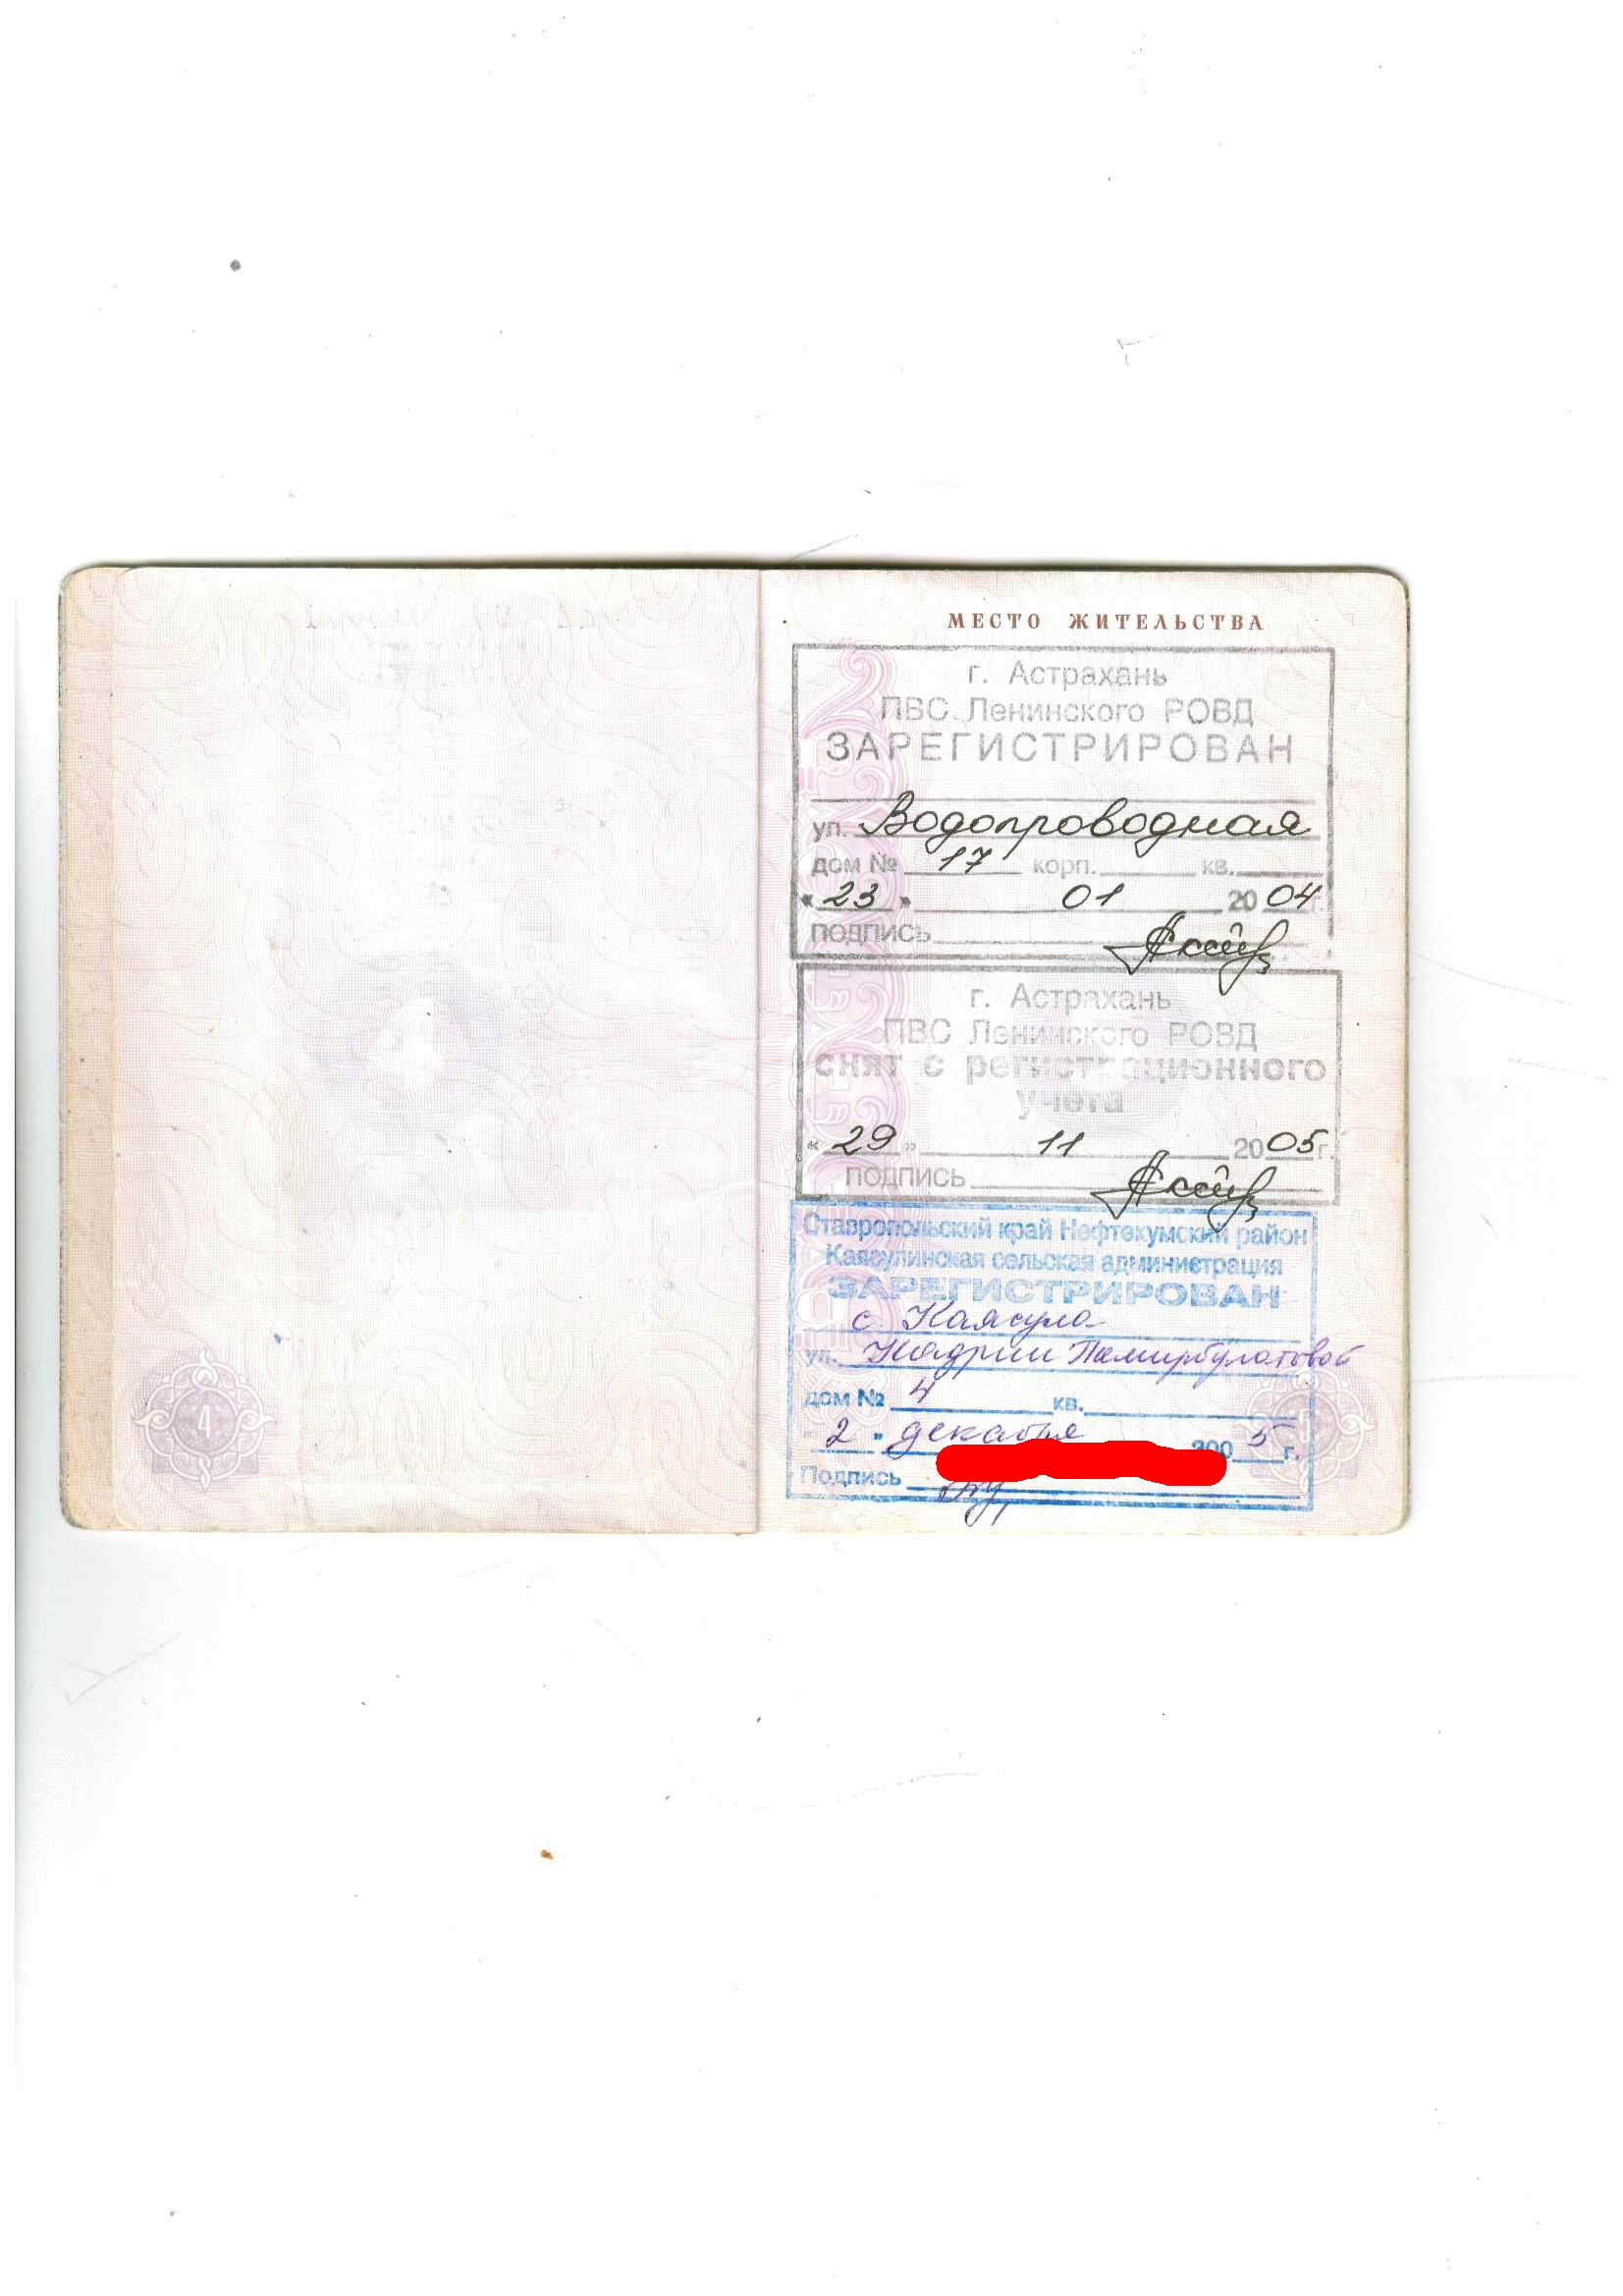 МЕСТО ЖИТЕЛЬСТВА
г. Астрахань
ПВС Ленинского РОВД
ЗАРЕГИСТРИРОВАН
ул. Водопроводная
дом № 17 корп. кв.
« 23 » 01 20 04 г.
ПОДПИСЬ
г. Астрахань
ПВС Ленинского РОВД
снят с регистрационного
учета
« 29 » 11 20 05 г.
ПОДПИСЬ
Ставропольский край Нефтекумский район
Каясулинская сельская администрация
ЗАРЕГИСТРИРОВАН
с. Каясула
ул. Кадрии Темирбулатовой
дом № 4 кв.
" 2 " декабря 200 5 г.
Подпись
4
5